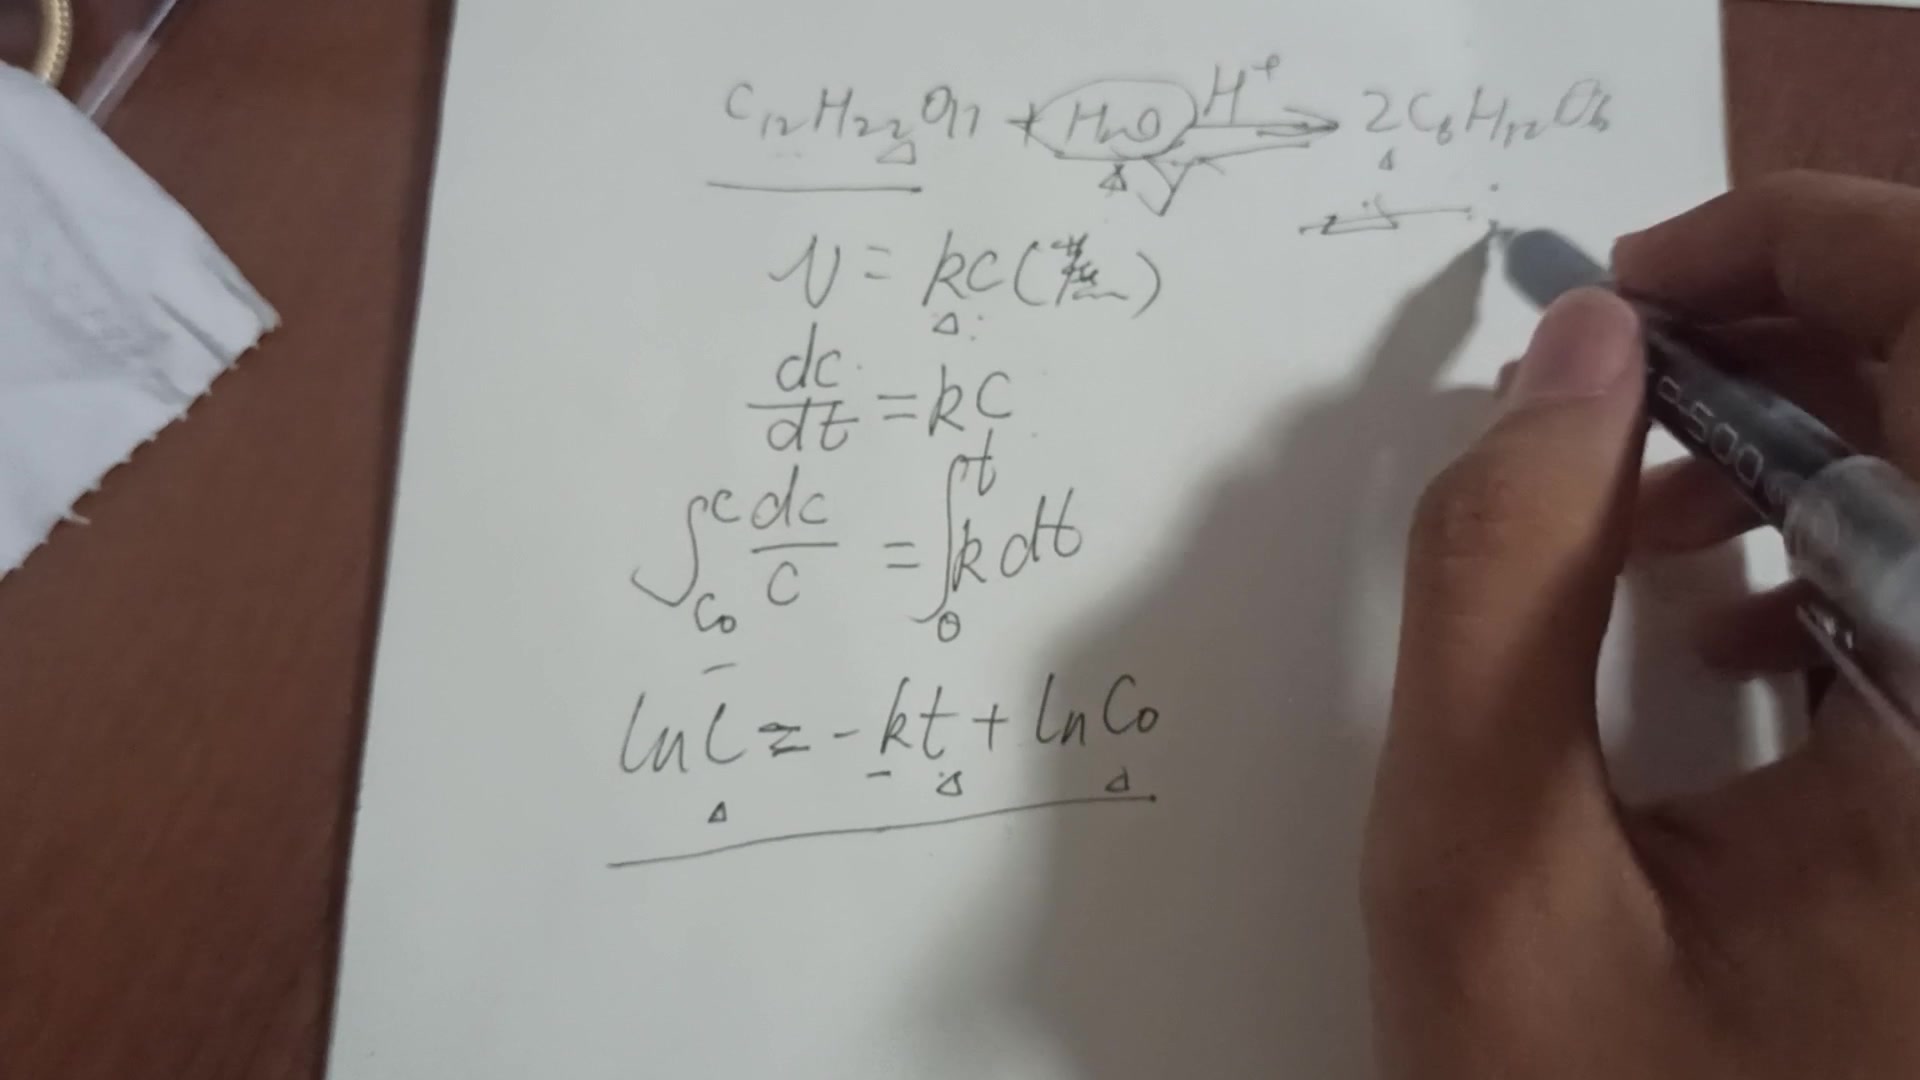 C₁₂H₂₂O₁₁ + H₂O H⁺ → 2C₆H₁₂O₆
v = kc(蔗)
dc/dt = kc
∫_{C₀}^{C} dc/c = ∫_{0}^{t} k dt
ln C = -kt + ln C₀
500